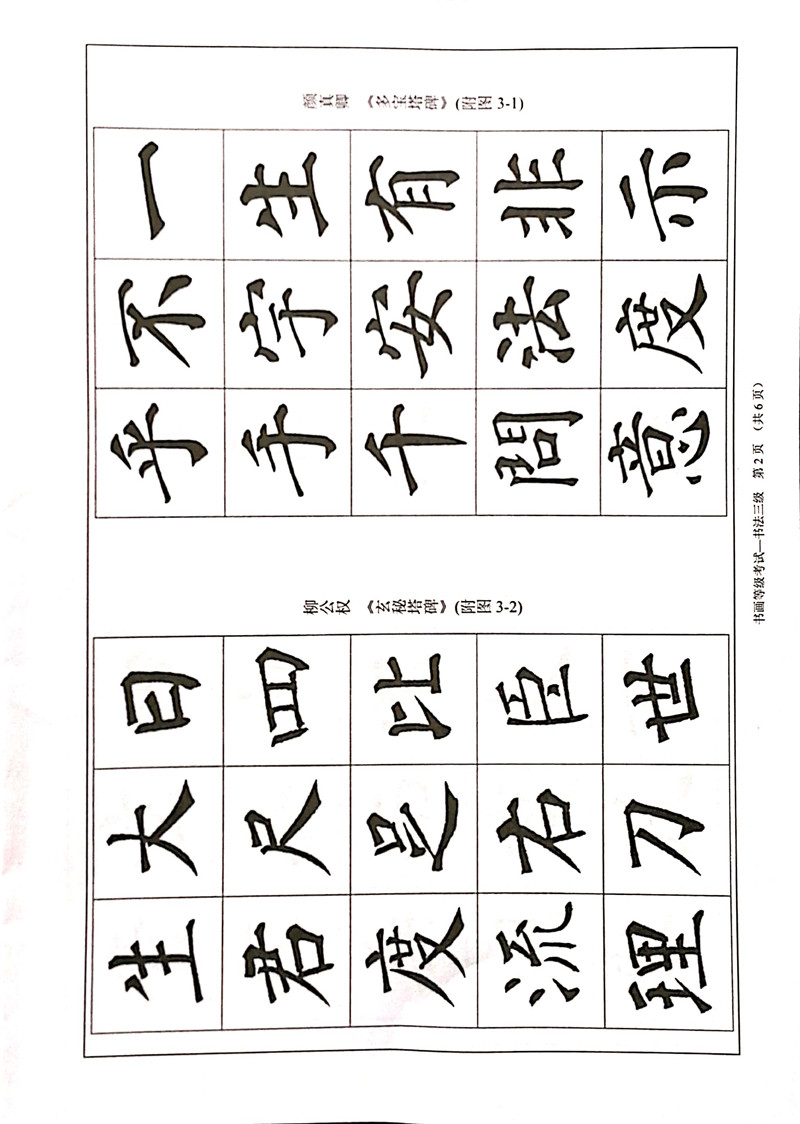 颜真卿 《多宝塔碑》(附图 3-1)
一生有非示
不字安法度
乎手千問意
柳公权 《玄秘塔碑》(附图 3-2)
日四臣世
大尺是右刀
生君度流理
书画等级考试—书法三级 第 2 页 (共 6 页)